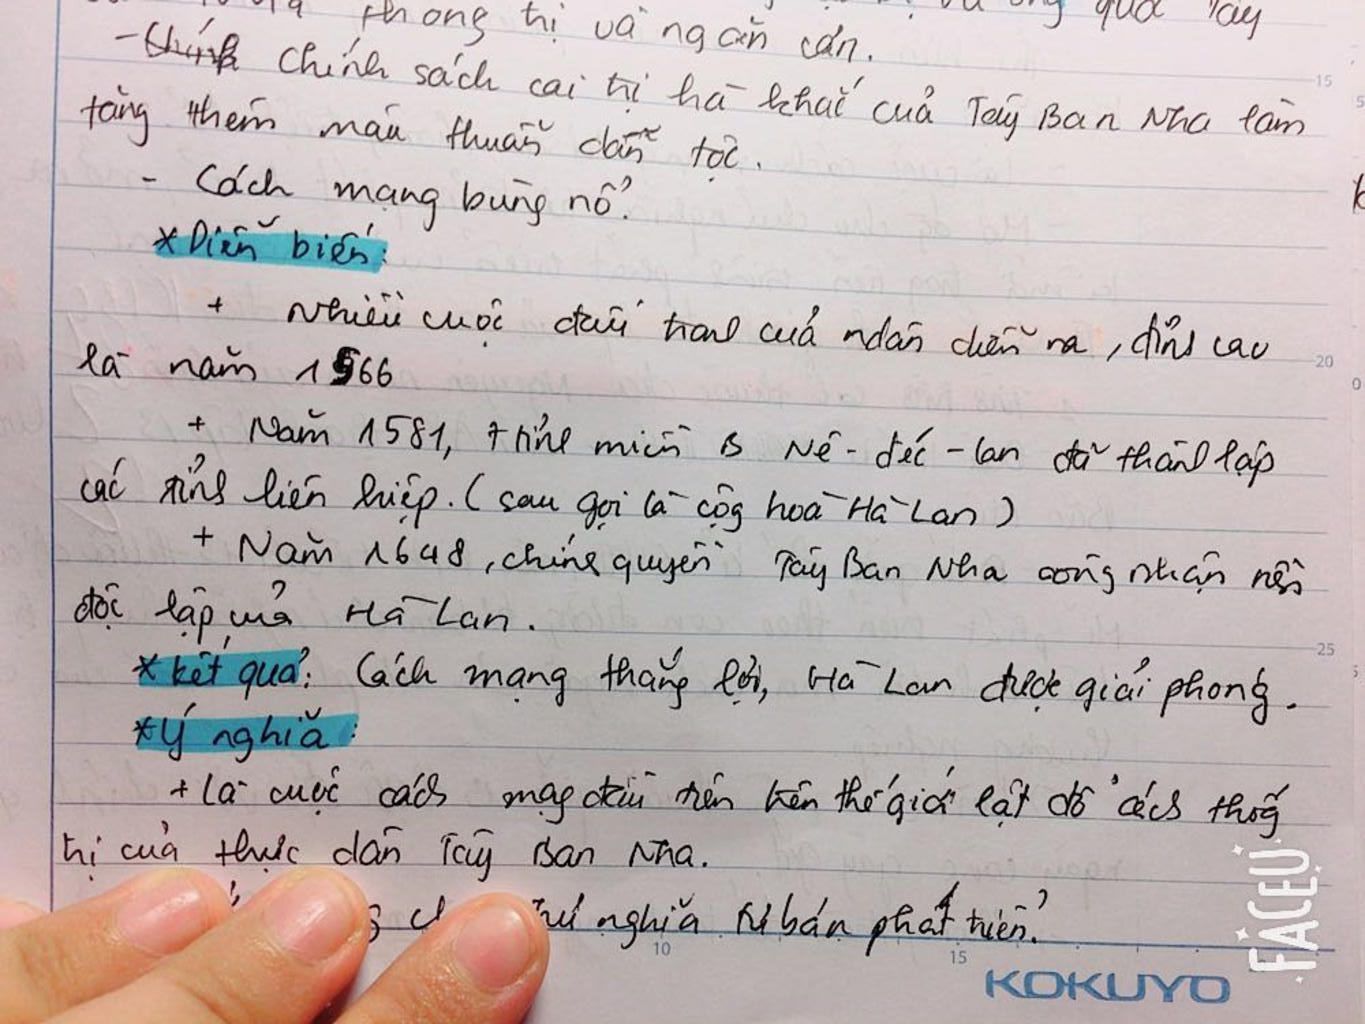 thống trị và ngăn cản. quá Tây
- Chính sách cai trị hà khắc của Tây Ban Nha làm
tăng thêm mâu thuẫn dân tộc.
- Cách mạng bùng nổ.
* Diễn biến:
+ Nhiều cuộc đấu tranh của ndân diễn ra, đỉnh cao
là năm 1566
+ Năm 1581, 7 tỉnh miền B Nê-đéc-lan đã thành lập
các tỉnh liên hiệp. (sau gọi là cộg hoà Hà Lan)
+ Năm 1648, chính quyền Tây Ban Nha công nhận nền
độc lập của Hà Lan.
* Kết quả: Cách mạng thắng lợi, Hà Lan được giải phóng.
* Ý nghĩa:
+ Là cuộc cách mạg đầu tiên trên thế giới lật đổ ách thốg
trị của thực dân Tây Ban Nha.
nghĩa tư bản phát triển.
15
20
25
10
15
KOKUYO
FACEU